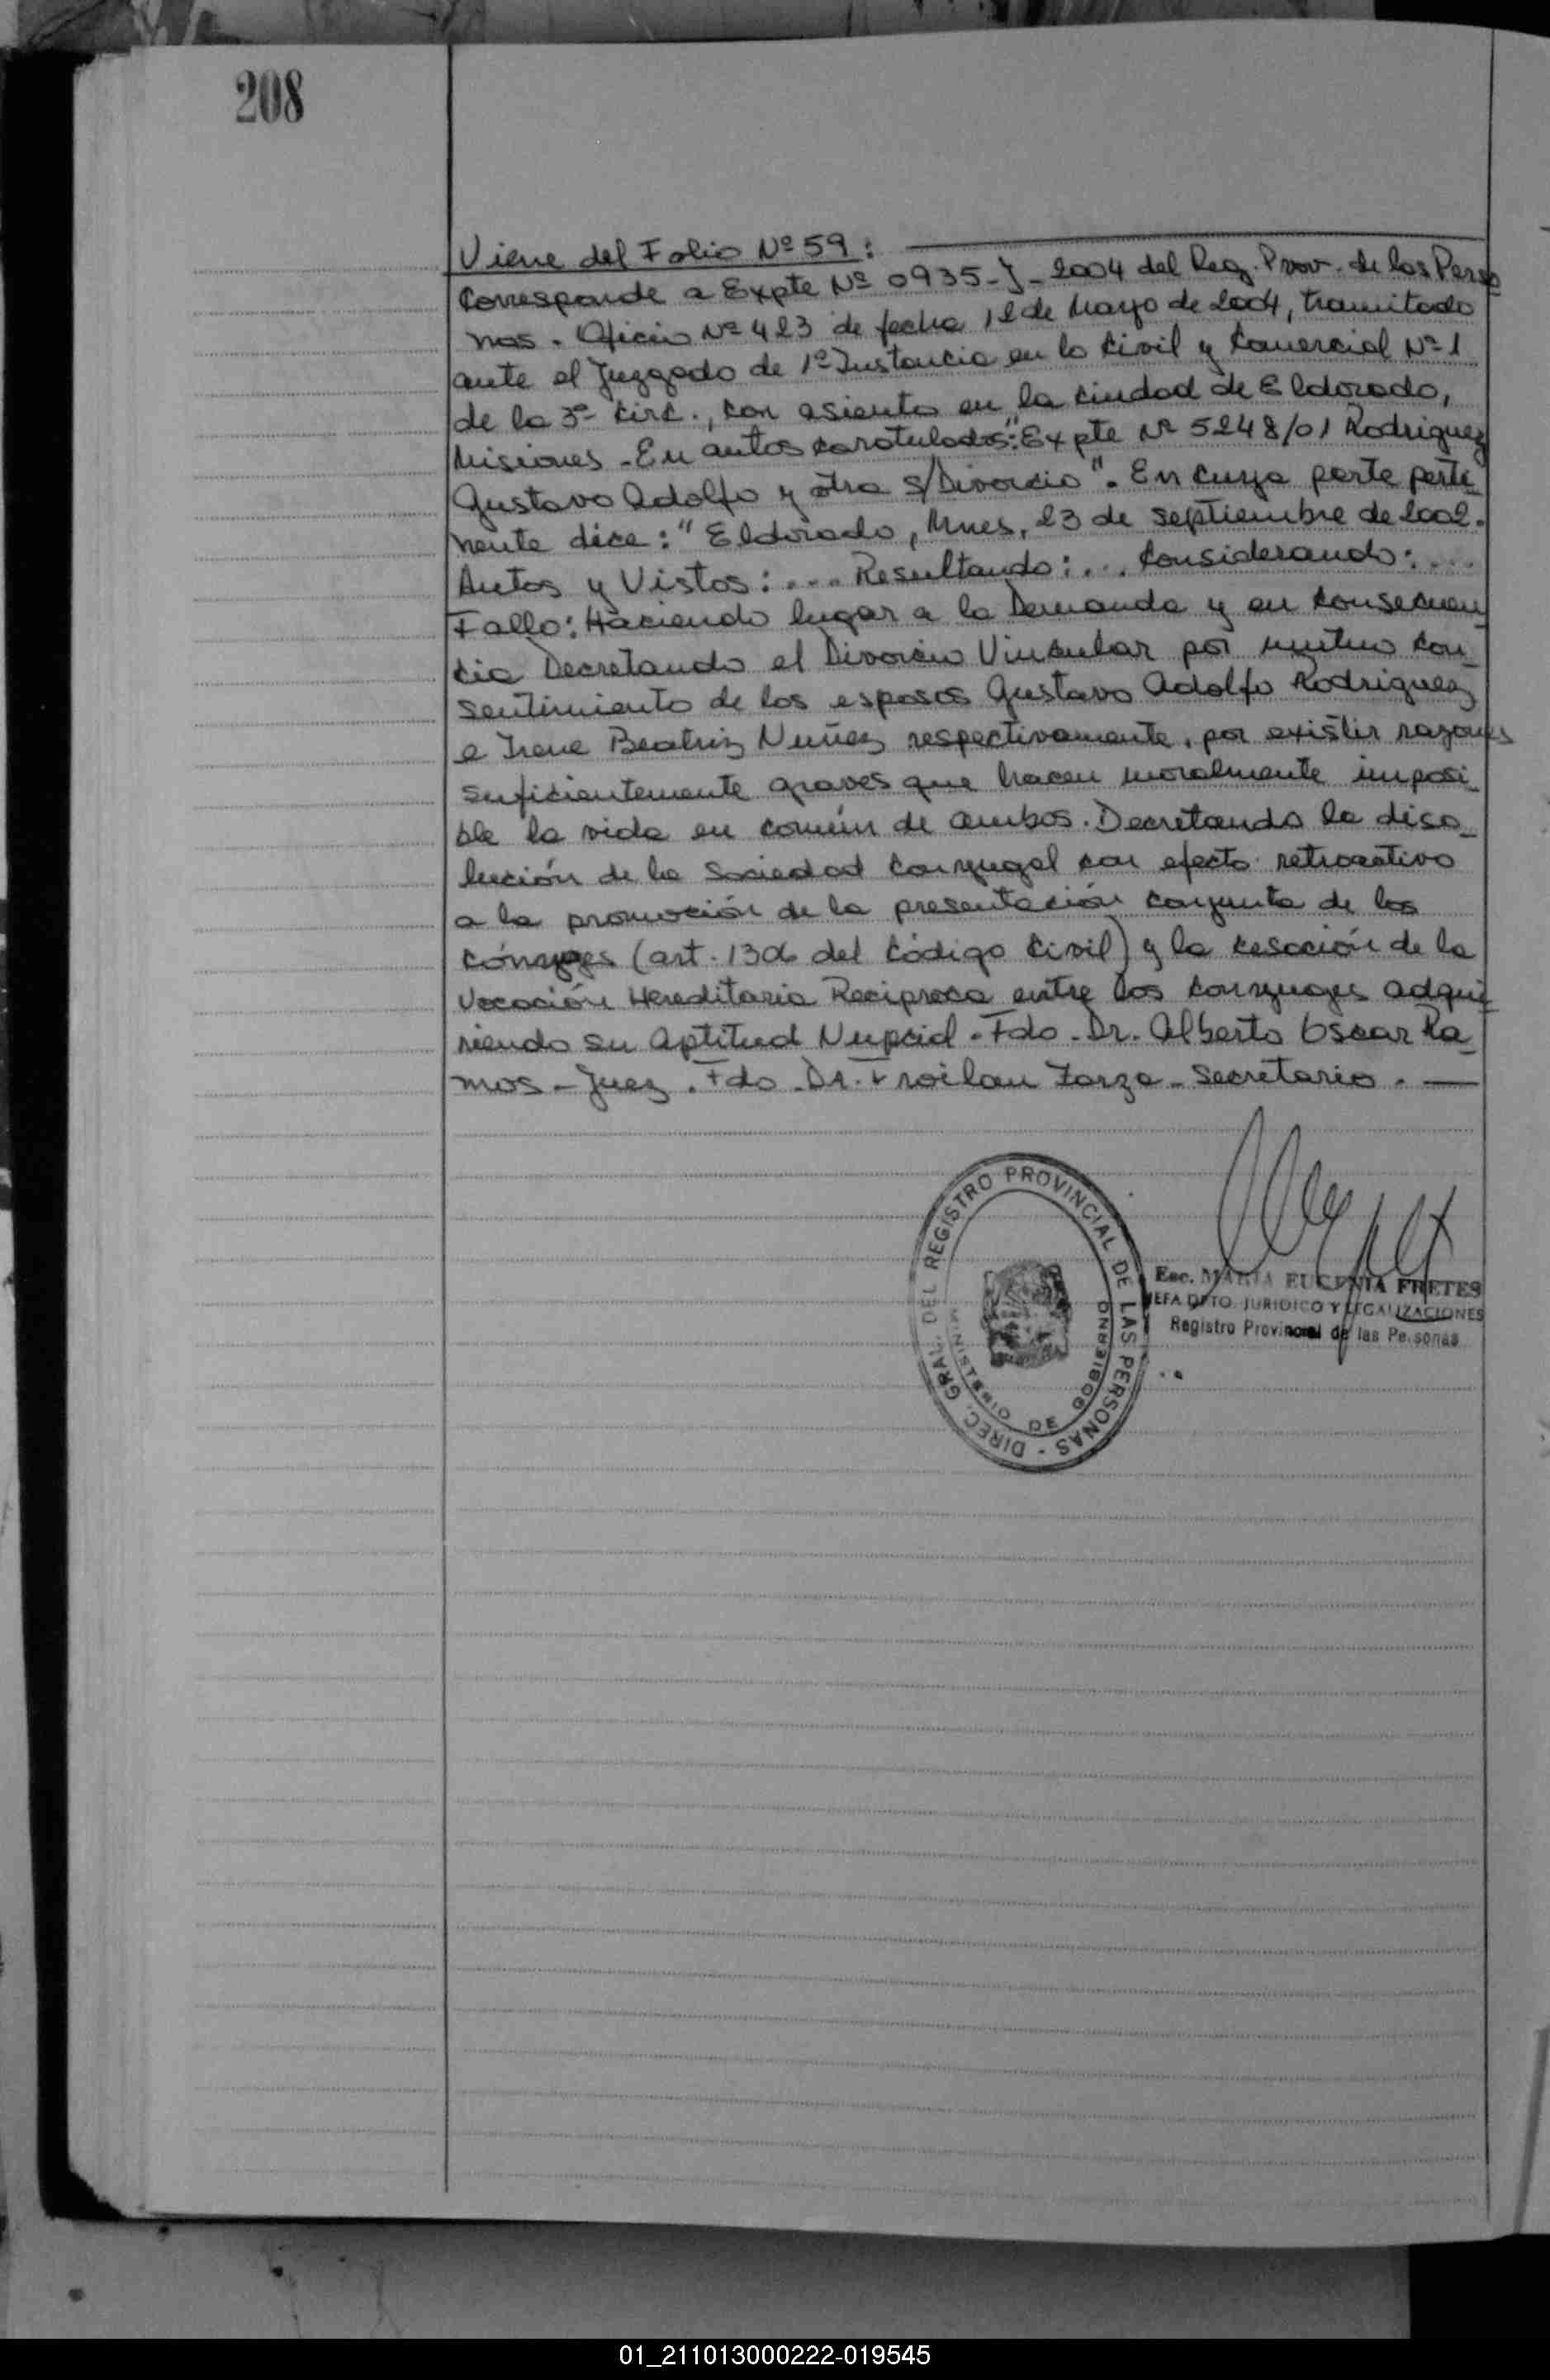 208
Viene del Folio Nº 59:
Corresponde a Expte Nº 0935-J-2004 del Reg. Prov. de las Perso
nas. Oficio Nº 423 de fecha 12 de Mayo de 2004, tramitado
ante el Juzgado de 1º Instancia en lo Civil y Comercial Nº 1
de la 3º Circ., con asiento en la ciudad de Eldorado,
Misiones. En autos caratulados: "Expte Nº 5248/01 Rodriguez
Gustavo Adolfo y otra s/Divorcio". En cuya parte perti_
nente dice: "Eldorado, Mnes, 23 de septiembre de 2002.
Autos y Vistos: .... Resultando: ... Considerando: ....
Fallo: Haciendo lugar a la Demanda y en consecuen_
cia Decretando el Divorcio Vincular por mutuo con_
sentimiento de los esposos Gustavo Adolfo Rodriguez
e Irene Beatriz Nuñez respectivamente, por existir razones
suficientemente graves que hacen moralmente imposi_
ble la vida en común de ambos. Decretando la diso_
lución de la Sociedad Conyugal con efecto retroactivo
a la promoción de la presentación conjunta de los
cónyuges (art. 1306 del Código Civil) y la cesación de la
Vocación Hereditaria Reciproca entre los conyuges adqui_
riendo su Aptitud Nupcial. Fdo. Dr. Alberto Oscar Ra_
mos - Juez. Fdo. Dr. Froilan Zarza - Secretario. —
DIREC. GRAL. DEL REGISTRO PROVINCIAL DE LAS PERSONAS -
MINISTERIO DE GOBIERNO
Esc. MARIA EUGENIA FRETES
JEFA DPTO. JURIDICO Y LEGALIZACIONES
Registro Provincial de las Personas
01_211013000222-019545